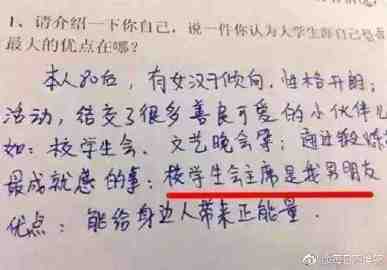 1、请介绍一下你自己，说一件你认为大学生涯自己感点
最大的优点在哪？
本人80后，有女汉子倾向，性格开朗；
活动，结交了很多善良可爱的小伙伴儿
如：校学生会、文艺晚会等；通过锻炼
最成就感的事：校学生会主席是我男朋友
优点：能给身边人带来正能量．